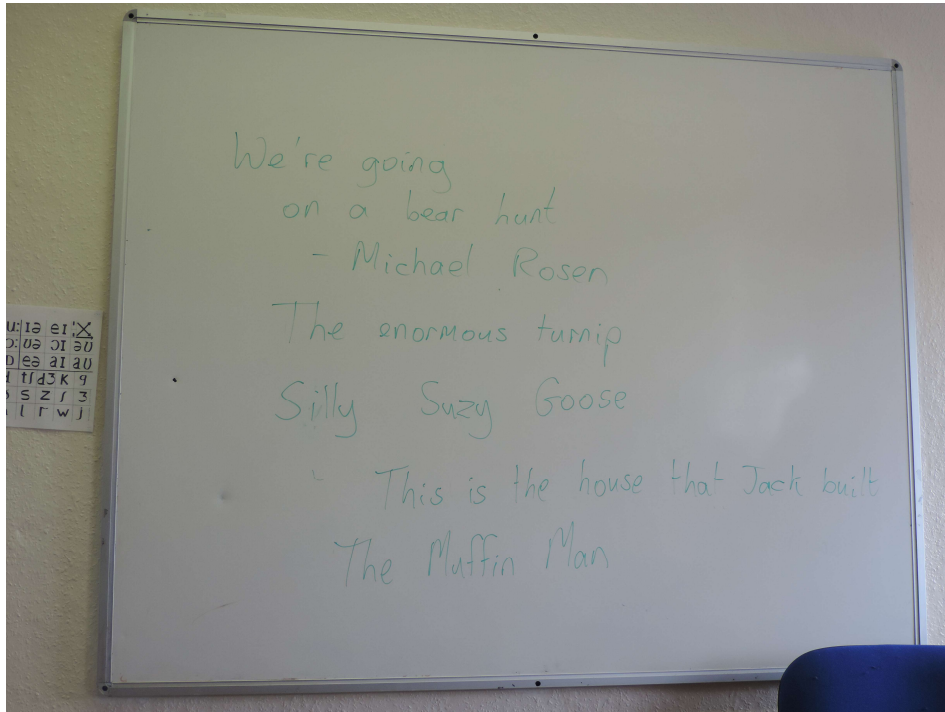 We're going
on a bear hunt
- Michael Rosen
The enormous turnip
Silly Suzy Goose
This is the house that Jack built
The Muffin Man
u: ɪə eɪ X
ɔ: ʊə ɔɪ əʊ
eə aɪ aʊ
tʃ dʒ k g
s z ʃ ʒ
l r w j